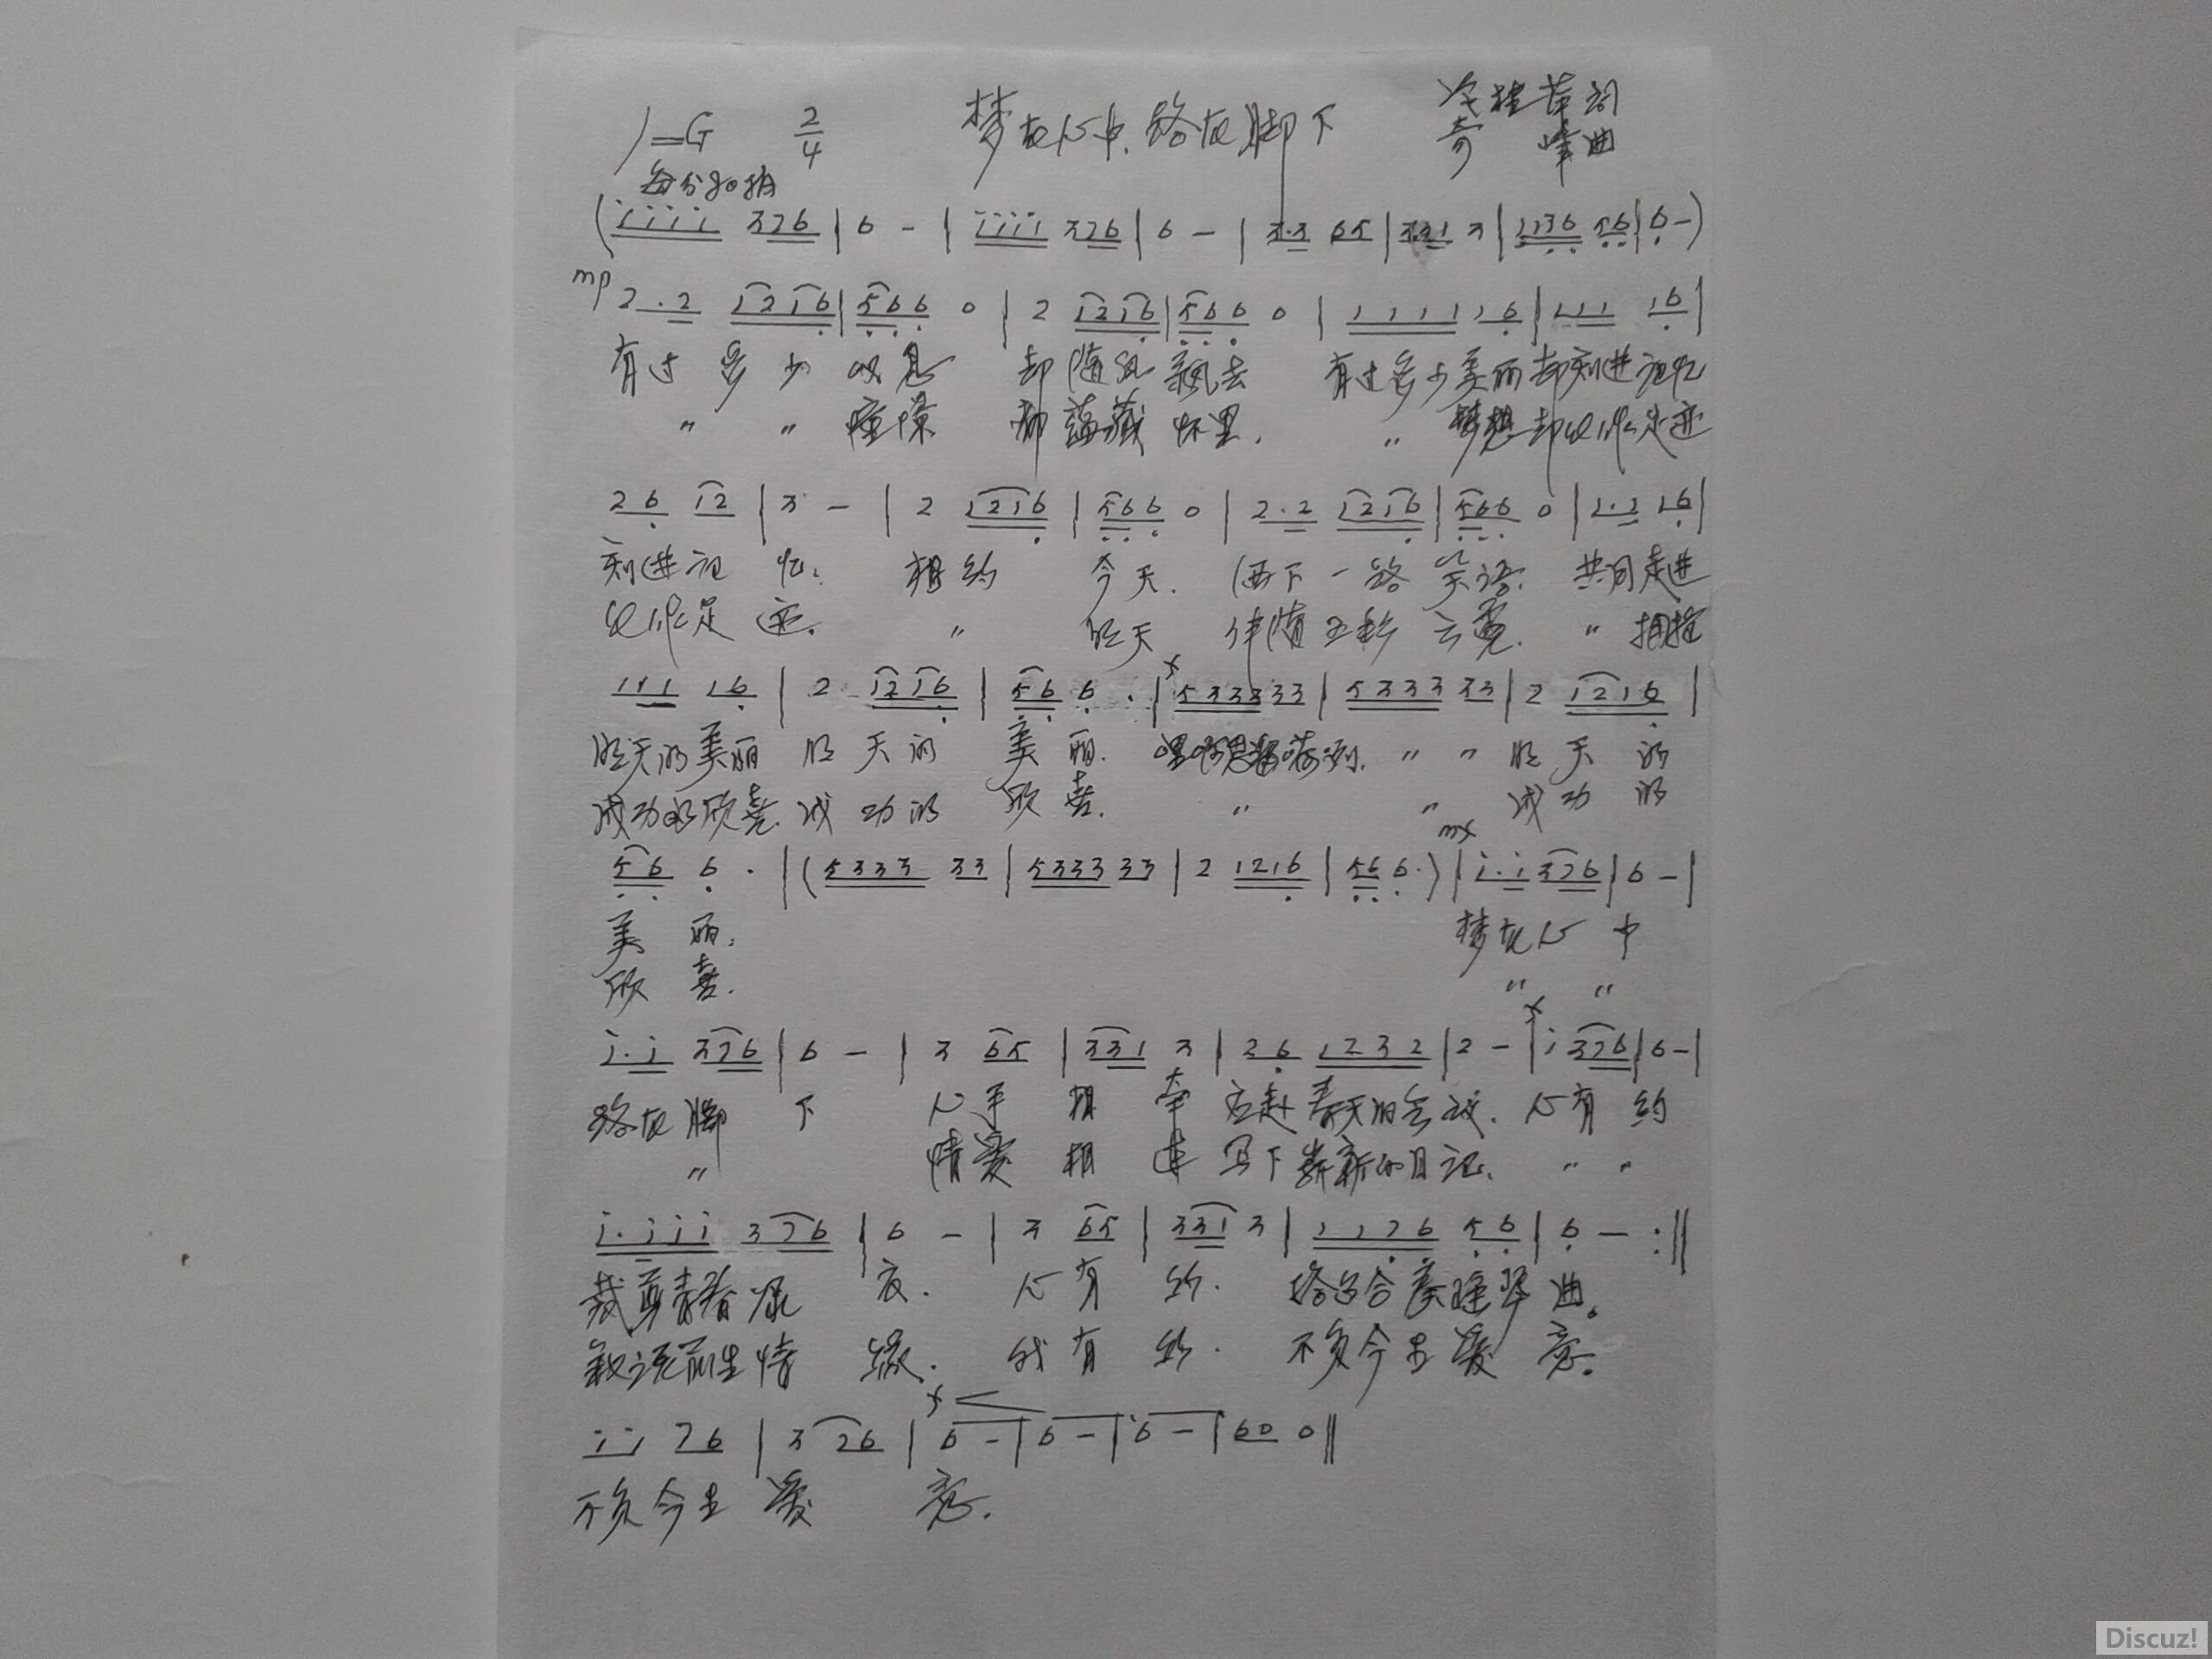 1=G 2/4 梦在心中.路在脚下 词
每分80拍 奇峰曲
(i i i i 3 7 6 | 6 - | i i i i 3 7 6 | 6 - | 3·3 6 5 | 3 3 1 3 | 1 1 3 6 5 6 | 6 -)
mp 2·2 1 2 1 6 | 5 6 6 0 | 2 1 2 1 6 | 5 6 6 0 | 1 1 1 1 1 6 | 1 1 1 1 6 |
有过多少叹息 却随风飘去 有过多少美丽却刻进记忆
" " 憧憬 都蕴藏怀里. " 梦想却足迹
2 6 1 2 | 3 - | 2 1 2 1 6 | 5 6 6 0 | 2·2 1 2 1 6 | 5 6 6 0 | 1·1 1 6 |
刻进记忆. 相约今天. 洒下一路笑语. 共同走进
足迹. " 明天 伴随五彩云霓. " 拥抱
1 1 1 1 6 | 2 1 2 1 6 | 5 6 6 · | f 5 3 3 3 3 3 | 5 3 3 3 3 3 | 2 1 2 1 6 |
明天的美丽 明天的美丽. " " 明天的
成功的欣喜. 成功的欣喜. " " 成功的
5 6 6 · | (5 3 3 3 3 3 | 5 3 3 3 3 3 | 2 1 2 1 6 | 5 6 6 ·) | mf i·i 3 7 6 | 6 - |
美丽. 梦在心中
欣喜. " "
i·i 3 7 6 | 6 - | 3 6 5 | 3 3 1 3 | 2 6 1 2 3 2 | 2 - | f i 3 7 6 | 6 - |
路在脚下 心手相牵 春天的会议. 心有约
" 情爱相连 写下崭新的日记. " "
i·i i i 3 7 6 | 6 - | 3 6 5 | 3 3 1 3 | 1 1 7 6 5 6 | 6 - :||
裁剪青春 衣. 心有约. 合奏 曲。
前生情缘. 我有约. 不负今生爱意.
i i 7 6 | 3 7 6 | f 6 - | 6 - | 6 - | 6 0 0 ||
不负今生爱意.
Discuz!